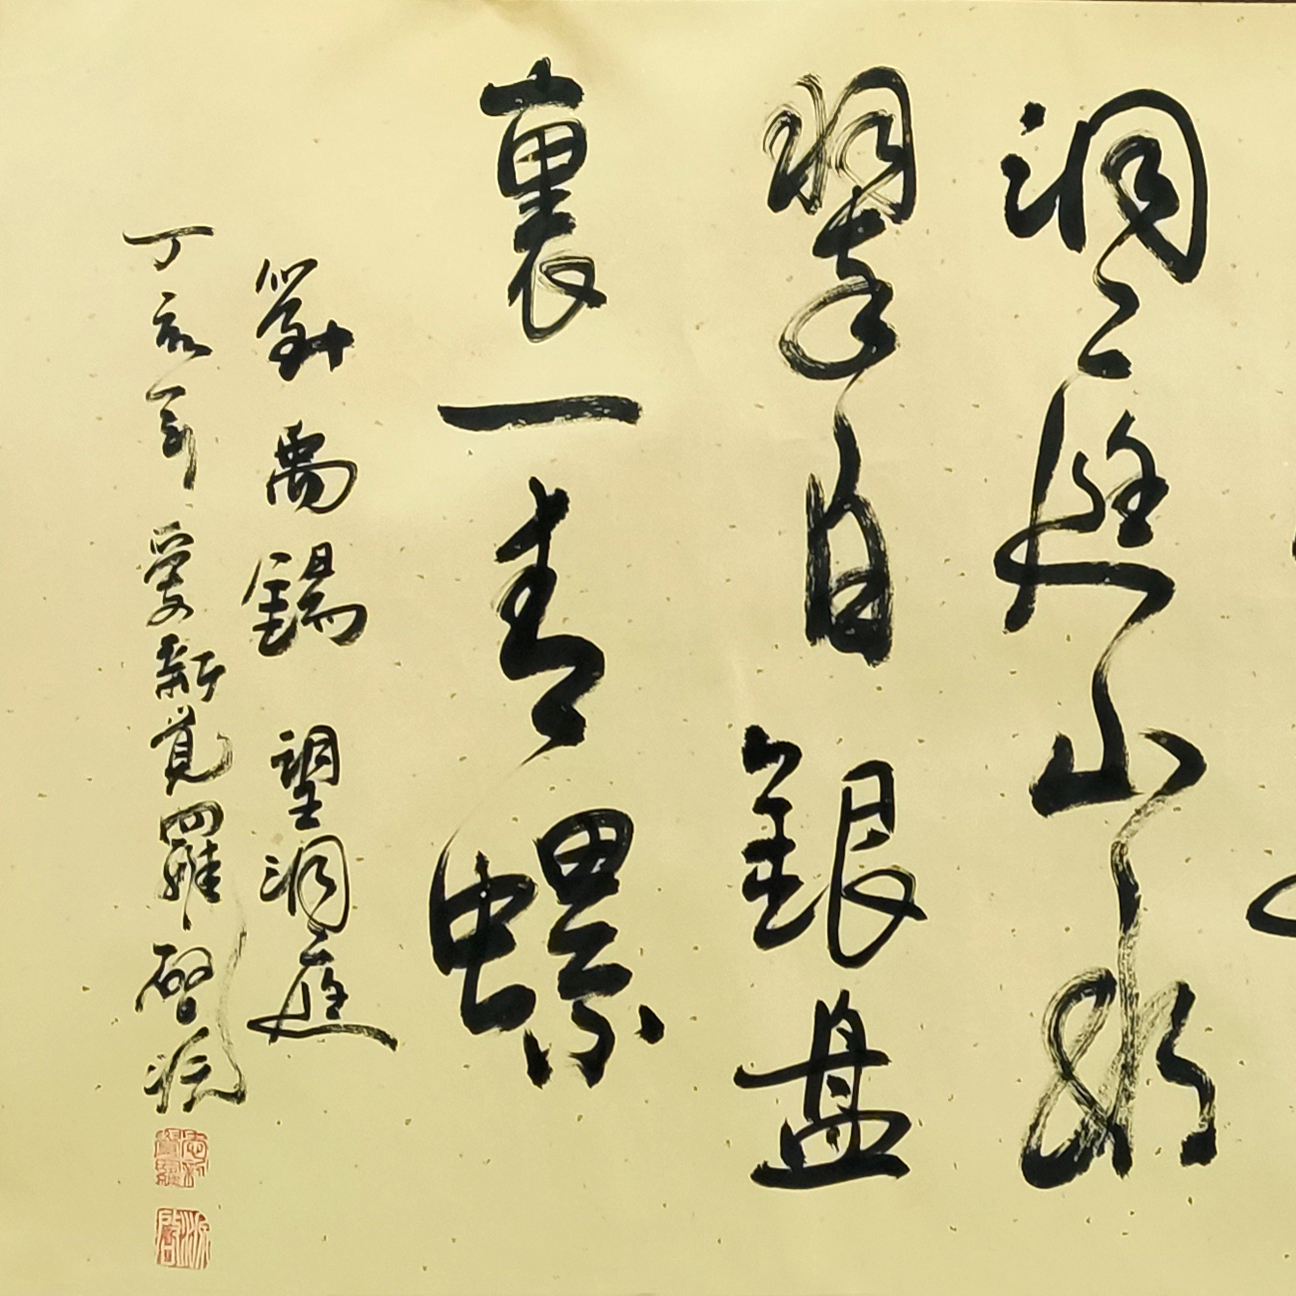 洞庭山水
翠白銀盘
裏一青螺
劉禹錫 望洞庭
丁亥年 愛新覺羅啓派